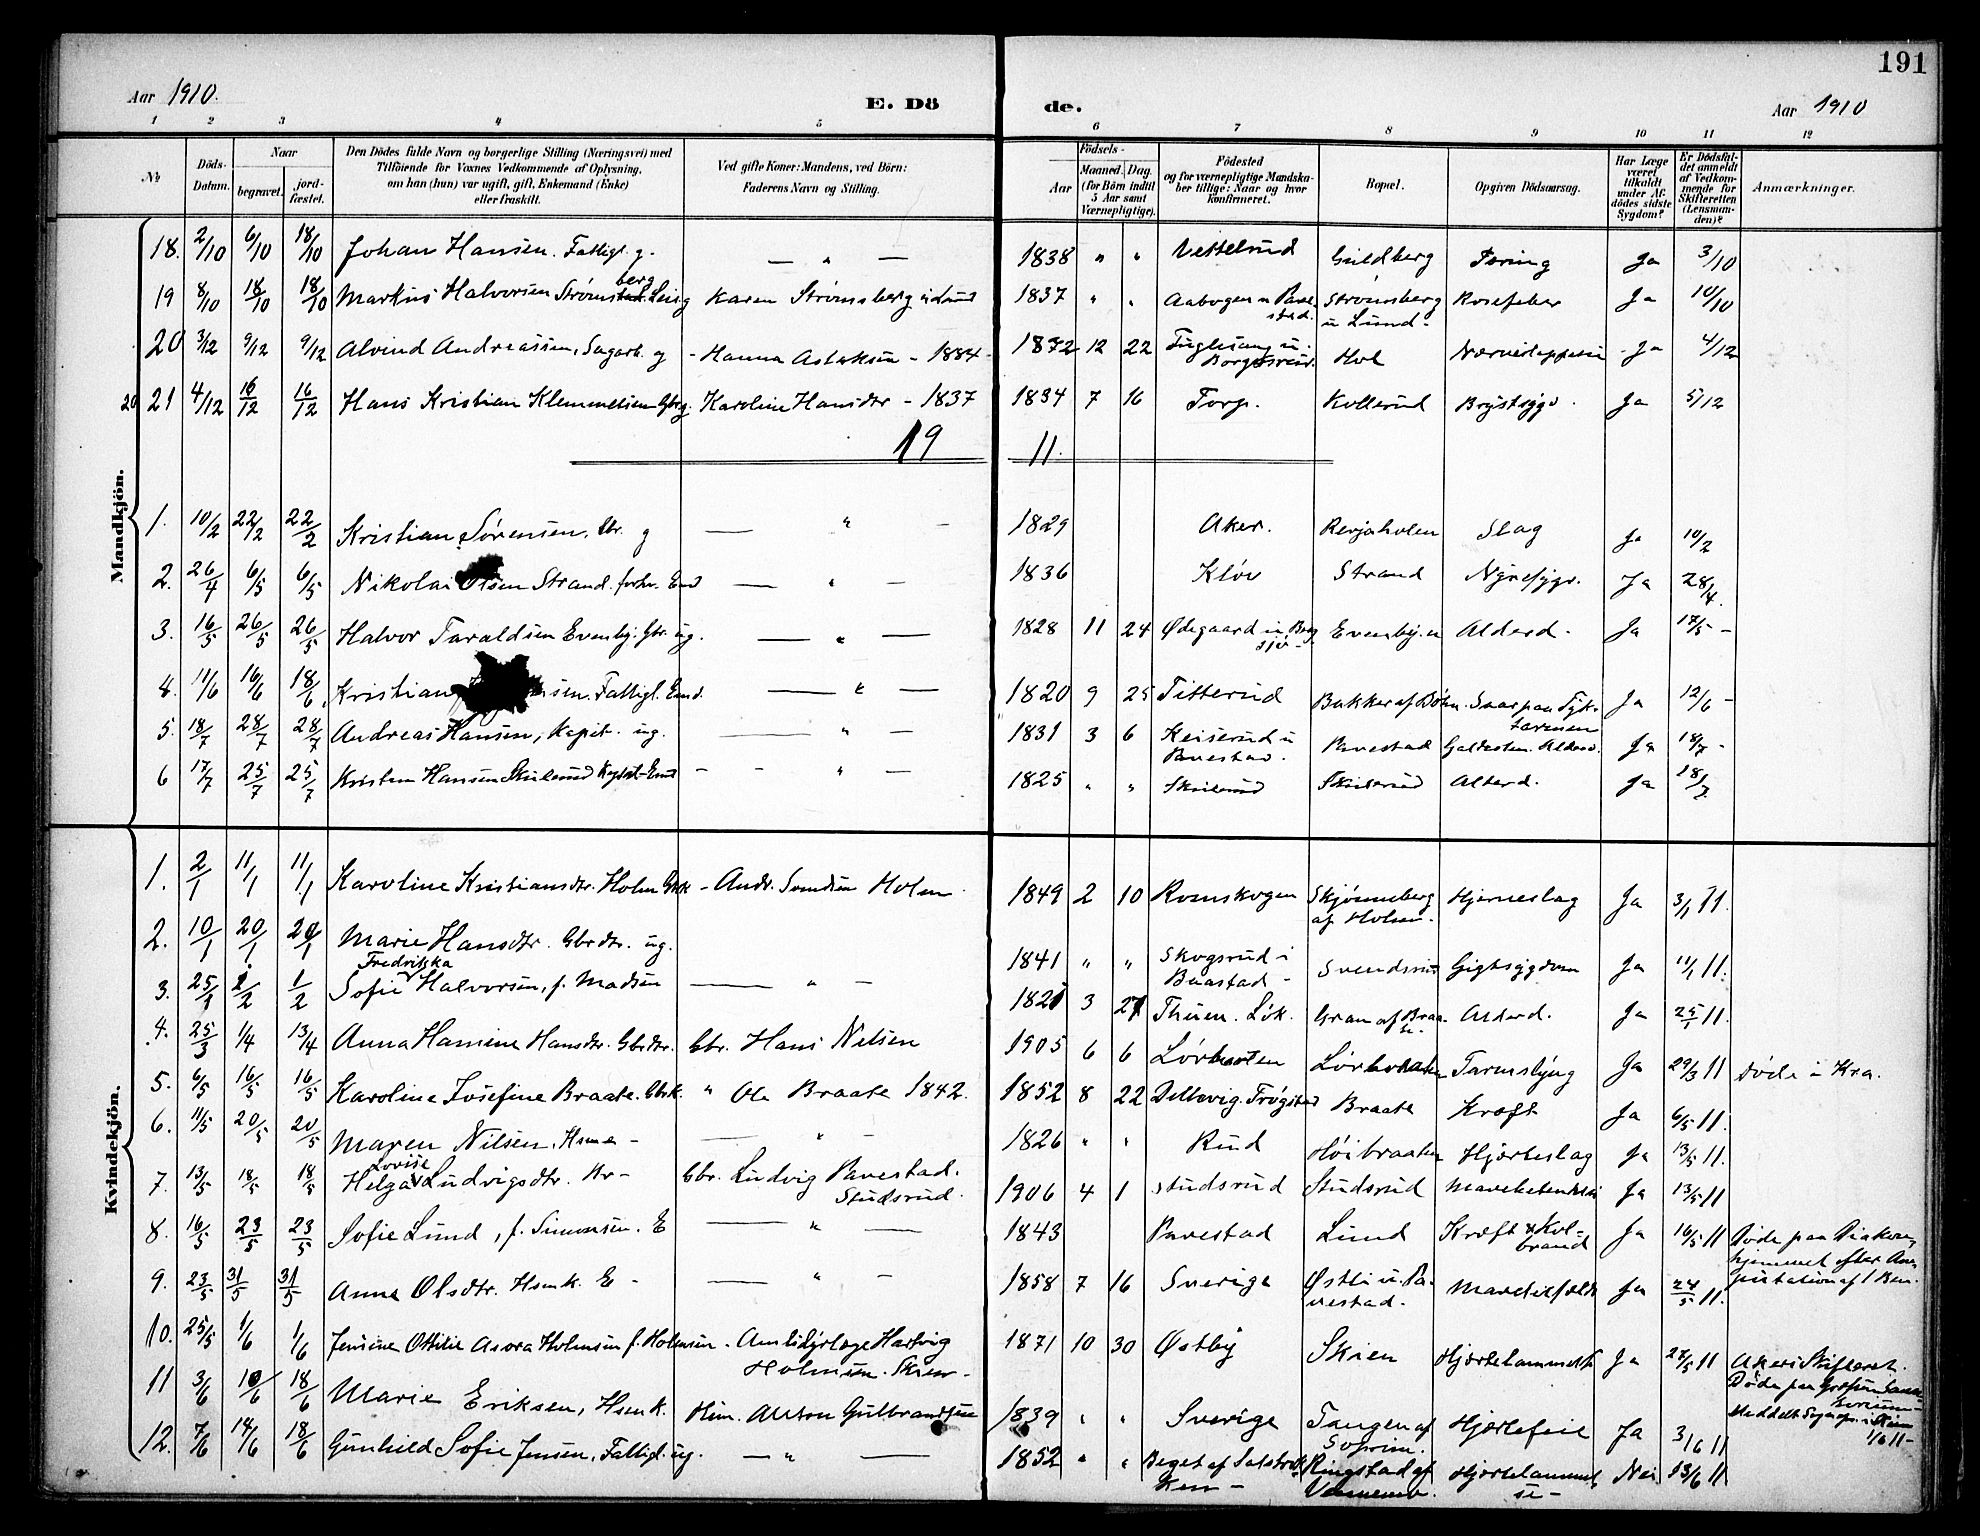 191
Aar 1910. E. Dö de. Aar 1910
1 2 3 4 5 6 7 8 9 10 11 12
№ Döds-Datum. Naar begravet. jord-fæstet. Den Dödes fulde Navn og borgerlige Stilling (Næringsvei) med Tilföiende for Voxnes Vedkommende af Oplysning, om han (hun) var ugift, gift, Enkemand (Enke) eller fraskilt. Ved gifte Koner: Mandens, ved Börn: Faderens Navn og Stilling. Födsels- Aar Maaned. Dag. (for Börn indtil 5 Aar samt Værnepligtige). Födested og for værnepligtige Mandskaber tillige: Naar og hvor konfirmeret. Bopæl. Opgiven Dödsaarsag. Har Læge været tilkaldt under Afdödes sidste Sygdom? Er Dödsfaldet anmeldt af Vedkommende for Skifteretten (Lensmanden)? Anmærkninger.
Mandkjön.
18. 2/10 6/10 18/10 Johan Hansen. Fattigl. g. — " — 1838 " " Vestelund Guldberg Tæring Ja 3/10
19 8/10 18/10 18/10 Markus Halvorsen Strømsberg Karen Strømsberg 1837 " " Aabogen u. Strømsberg u Lund Rosefeber Ja 10/10
20 3/12 9/12 9/12 Alvind Andreassen, Sagarb. g - Hanna Aslaksen - 1884 - 1872 12 22 Fuglesang u. Hol Ja 4/12
20 21 4/12 16/12 16/12 Hans Kristian Klemmetsen Gbr. g Karoline Hansdtr - 1837 1834 7 16 Torp. Kollerud Brystsyge. Ja 5/12
19 11
1. 10/2 22/2 22/2 Kristian Sørensen. g — " — 1829 Aker. Slag Ja 10/2
2. 26/4 6/5 6/5 Nikolai Olsen Strand. forhv. — " — 1836 Kløv Strand Nyresyge. Ja 28/4.
3. 16/5 26/5 26/5 Halvor Taraldsen Evenby. Gbr. ug. — " — 1828 11 24 Ødegaard Evenby. Alderd. Ja 17/5 -
4. 11/6 16/6 18/6 Kristian Fattigl. Emd. — " — 1820 9 25 Titterud Bakker af Saar paa Tyktarmen Ja 12/6 -
5. 18/7 28/7 28/7 Andreas Hansen, Kapit. ug. — " — 1831 3 6 Keiserud u Pavestad. Pavestad Galdesten. Ja 18/7 -
6 17/7 25/7 25/7 Kristen Hansen Skilerud — " — 1825 " " Skilerud Skilerud Alderd. Ja 18/7
Kvindekjön.
1. 2/1 11/1 11/1 Karoline Kristiansdtr. Holm Gbk - Andr. Svendsen Holm 1849 2 10 Romskogen Skjønneberg af Holm. Hjerneslag Ja 3/1 11.
2. 10/1 20/1 20/1 Marie Hansdtr. Gbrdtr. ug. 1841 " " Skogsrud i Gigtsygdom Ja 11/1 11.
3. 25/1 1/2 1/2 Sofie Fredrikka Halvorsen, f. Madsen — " — 1821 3 27 Thuen. Løk. Gran af Braate Alderd. Ja 25/1 11.
4. 25/3 1/4 13/4 Anna Hansine Hansdtr. Gbrdtr. Gbr. Hans Nilsen 1905 6 6 Lørbraaten Ja 29/3 11 Døde i Kra.
5. 6/5 16/5 16/5 Karoline Josefine Braate. Gbk. " Ole Braate 1842. 1852 8 22 Trøgstad Braate Kræft Ja 6/5 11.
6. 11/5 20/5 20/5 Maren Nilsen. — " — 1826 " " Rud Høibraaten Hjerteslag Ja 13/5 11.
7. 13/5 18/5 18/5 Helga Lovise Ludvigsdtr. Gbr. Ludvig Pavestad. Studsrud. 1906 4 1 Studsrud Studsrud Ja 13/5 11
8. 16/5 23/5 23/5 Sofie Lund, f. Simonsen. E — " — 1843 Pavestad Lund Kræft & Koldbrand Ja 16/5 11 Døde paa Diakonhjemmet efter Amputation af 1 Ben.
9. 23/5 31/5 31/5 Anne Olsdtr. Hsmk. E - — " — 1858 7 16 Sverige Østli u. Pavestad. Ja 24/5 11.
10. 25/5 1/6 1/6 Jensine Ottilie Asora Holmsen f. Holmsen - Amtsdyrlæge Hartvig Holmsen. Skien - 1871 10 30 Østby Skien Hjertelammelse Ja 28/5 11 Aker Skifteret. Døde paa
11 3/6 10/6 18/6 Marie Eriksen, Hsmk. Hsm. Anton Gulbrandsen 1839 " " Sverige Tangen af Hjertefeil Ja 3/6 11 1/6 11 -
12. 7/6 14/6 18/6 Gunhild Sofie Jensen, Fattigl. ug. — " — 1852 " " Ringstad af Hjertelammelse - Nei 13/6 11